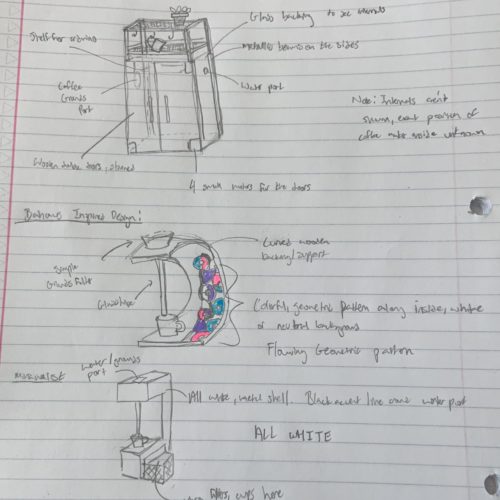 Glass backing to see internals
Shelf for
Metallic beams on the sides
Coffee
Grounds
Port
Water port
Note: Internals aren't
shown, exact position of
coffee maker inside unknown
Wooden double doors, stained
4 small motors for the doors
Bahaus Inspired Design:
Curved wooden
backing/support
Simple
Grounds Filter
Glass tube
Colorful, geometric pattern along inside, white
or neutral background
Flowing Geometric pattern
Water/grounds
port
Minimalist
All white, metal shell. Black accent line around water port
ALL WHITE
Filters, cups here